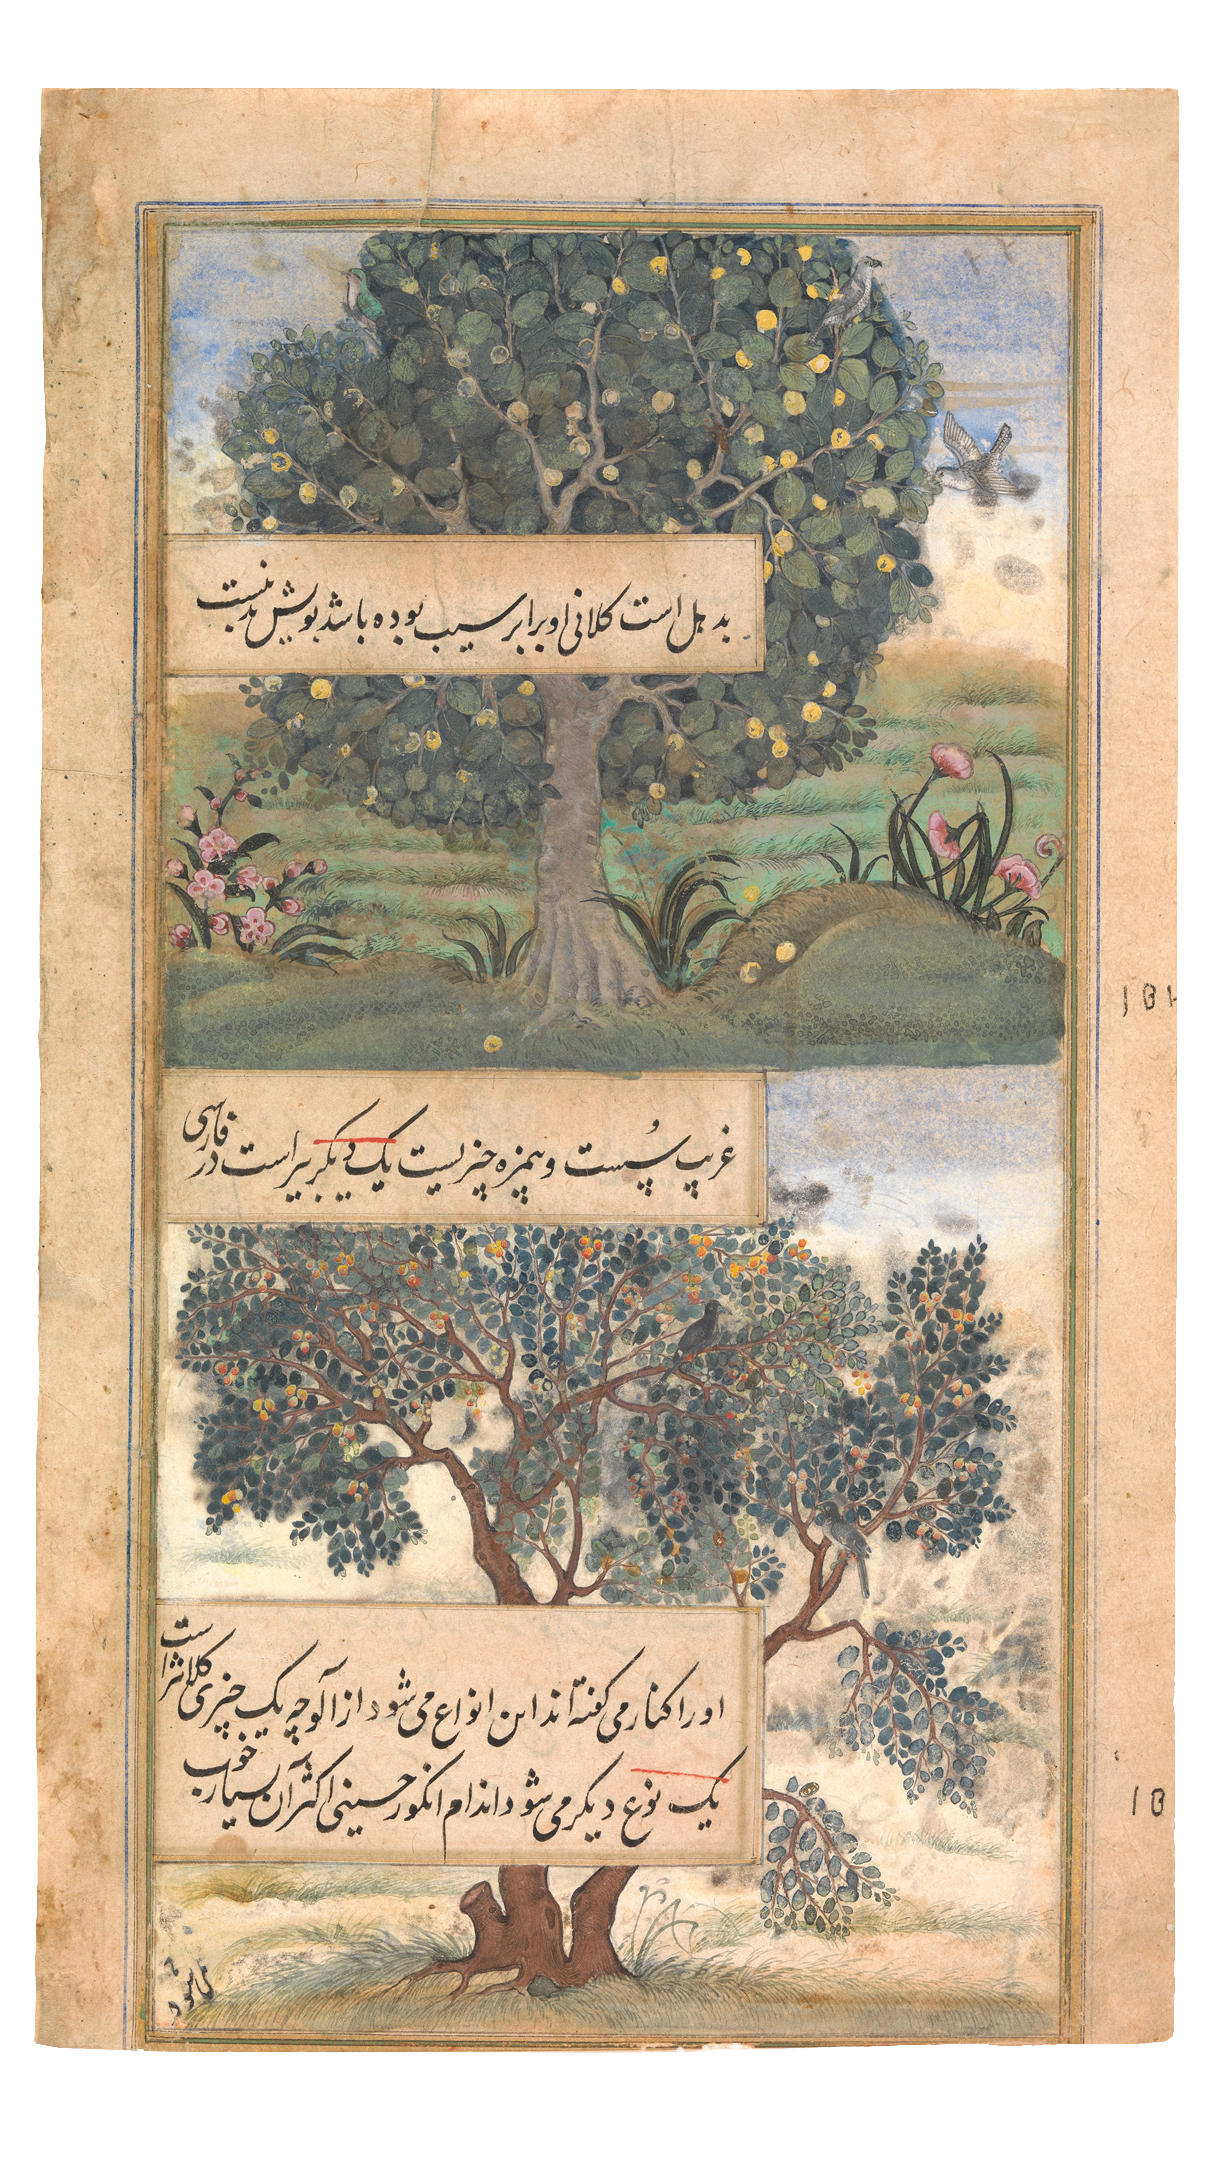 بدهل است کلانی او برابر سیب بوده باشد بویش بد نیست
غریب پُست و بیمزه چیزیست یک دیگر بیر است در فارسی
او را کنار می گفته اند این انواع می شود از آلوچه یک چیزی کلانتر است
یک نوع دیگر می شود اندام انگور حسینی اکثر آن بسیار خوب
نمی شود
181
18